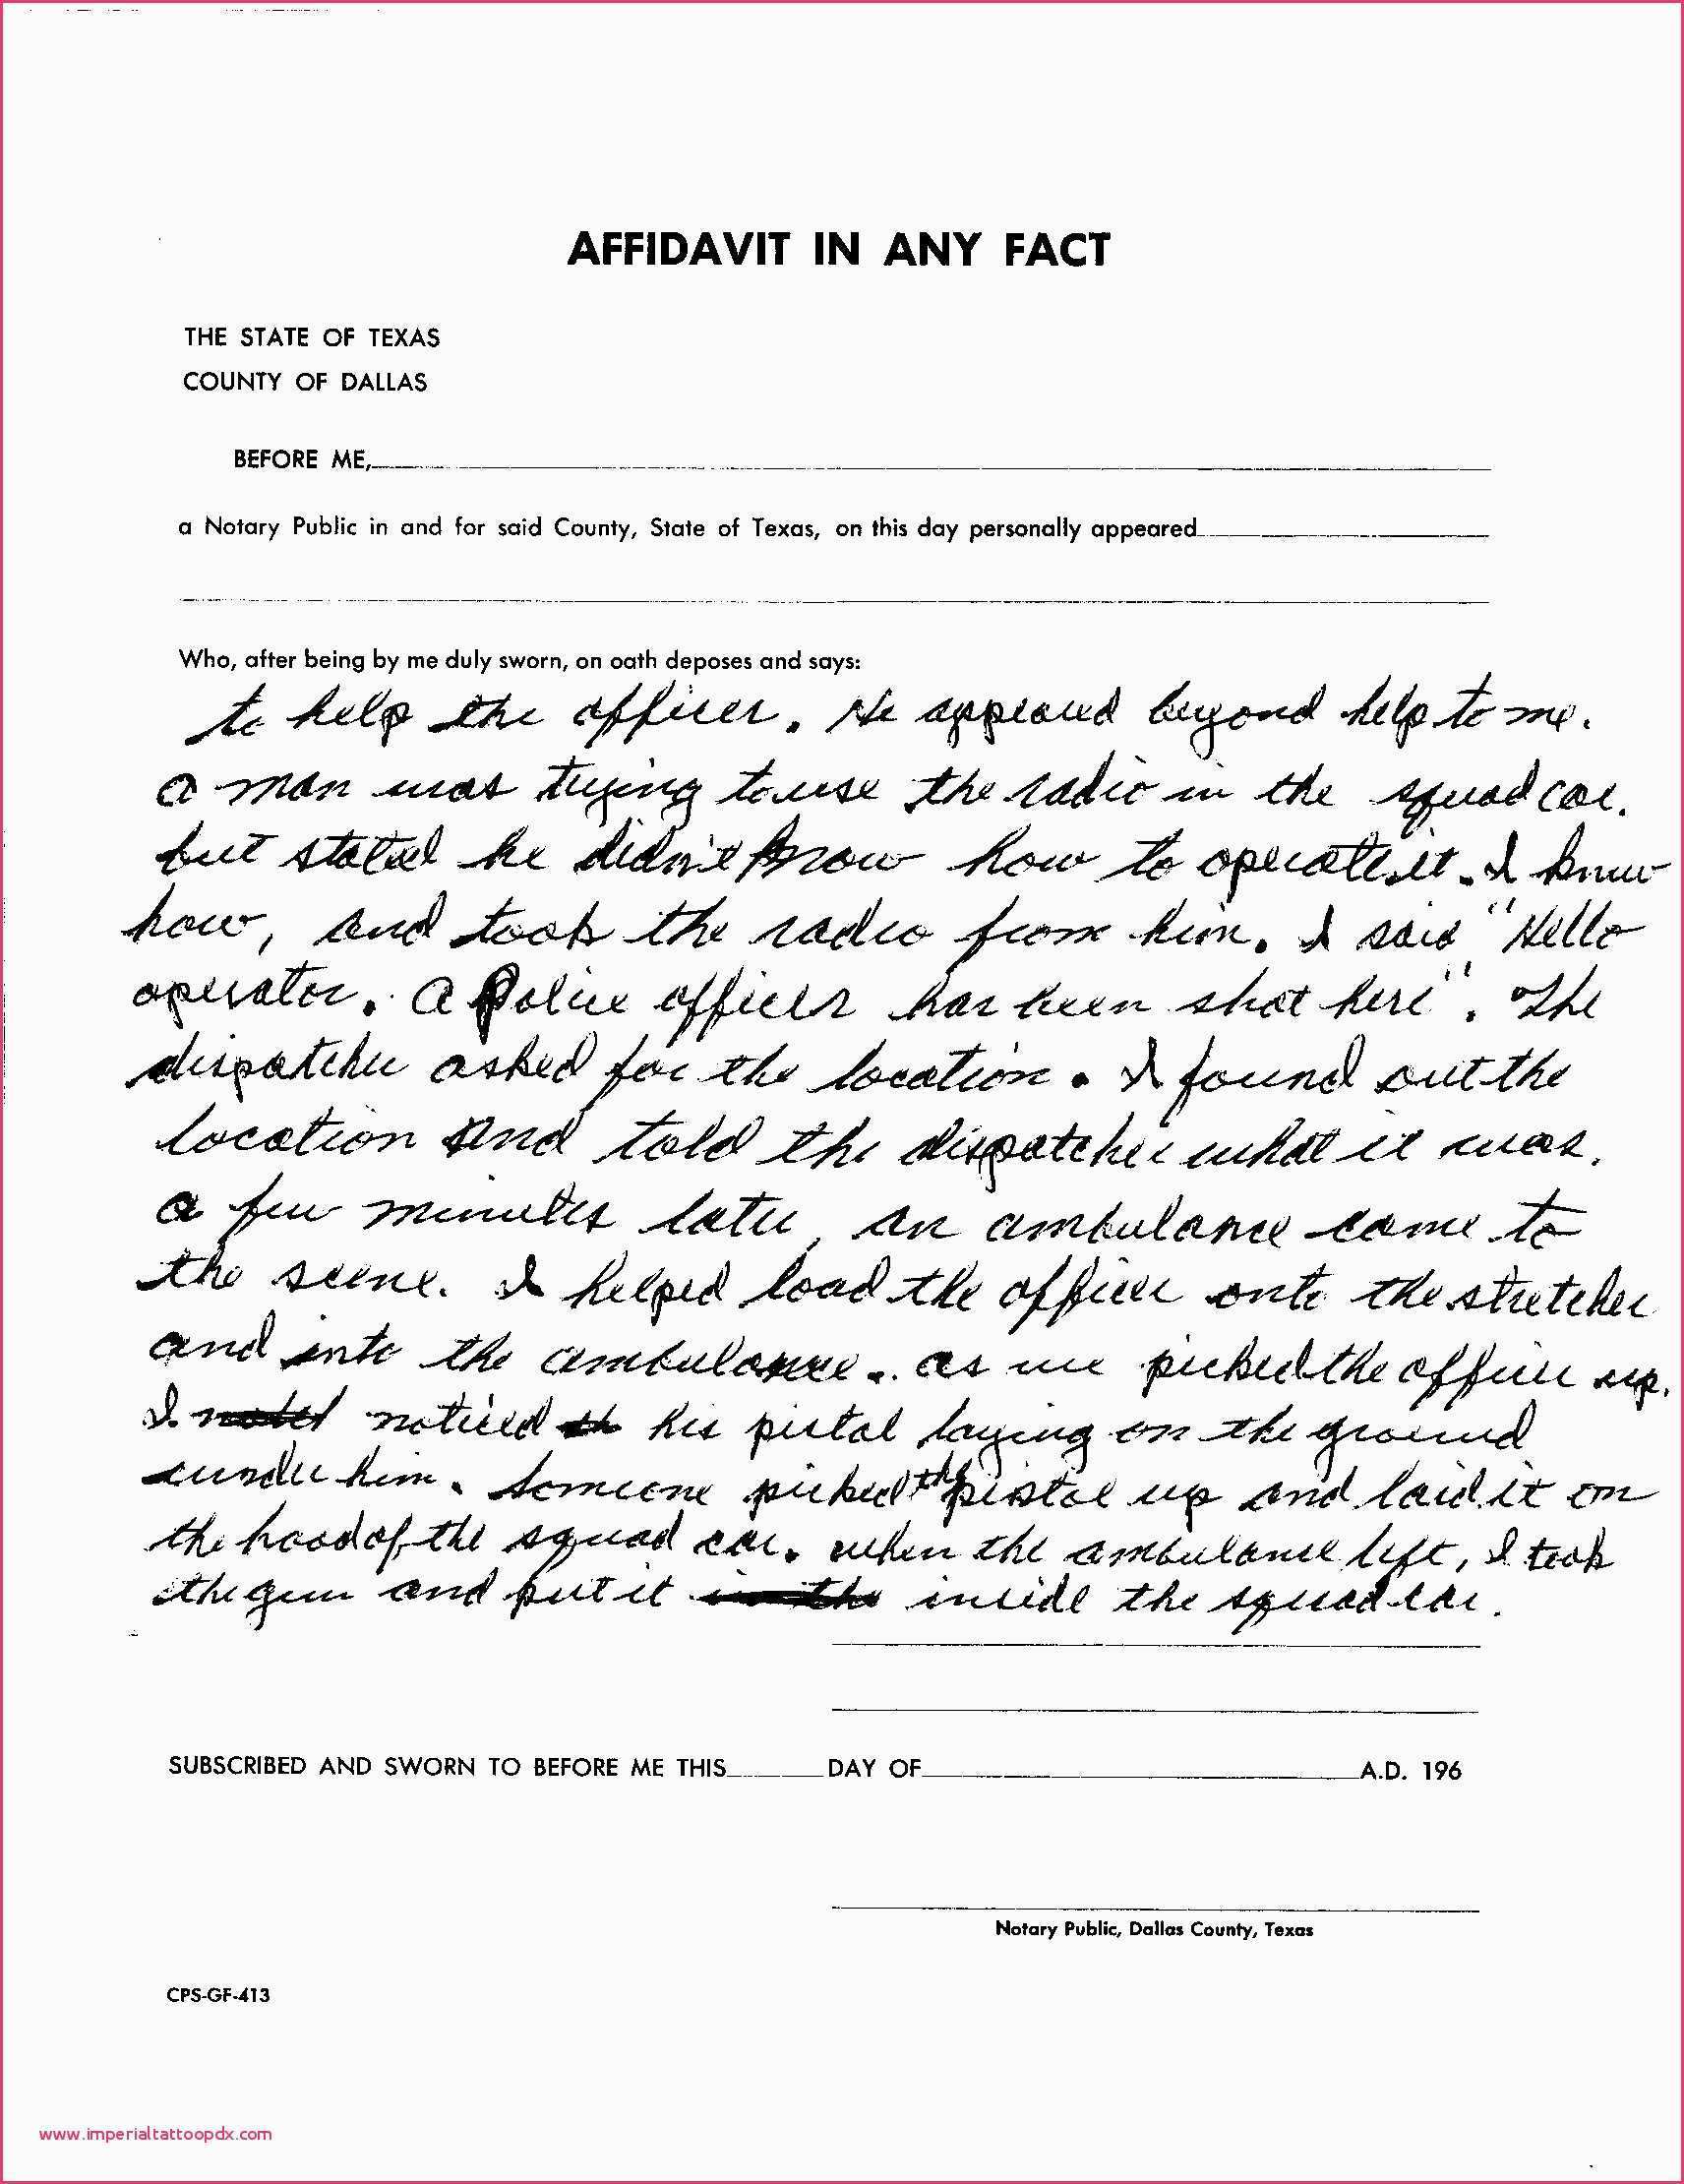 AFFIDAVIT IN ANY FACT
THE STATE OF TEXAS
COUNTY OF DALLAS
BEFORE ME,
a Notary Public in and for said County, State of Texas, on this day personally appeared
Who, after being by me duly sworn, on oath deposes and says:
to help the officer. He appeared beyond help to me.
a man was trying to use the radio in the squad car.
but stated he didn't know how to operate it. I knew
how, and took the radio from him. I said "Hello
operator. A Police officer has been shot here". The
dispatcher asked for the location. I found out the
location and told the dispatcher what it was.
a few minutes later, an ambulance came to
the scene. I helped load the officer onto the stretcher
and into the ambulance. as we picked the officer up.
I noticed his pistol laying on the ground
under him. Someone picked the pistol up and laid it on
the hood of the squad car. when the ambulance left, I took
the gun and put it inside the squad car.
SUBSCRIBED AND SWORN TO BEFORE ME THIS DAY OF A.D. 196
Notary Public, Dallas County, Texas
CPS-GF-413
www.imperialtattoopdx.com